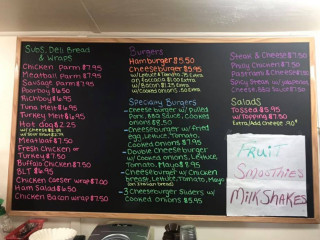 Subs, Deli Bread
& Wraps
Chicken Parm $7.95
Meatball Parm $7.95
Sausage Parm $7.95
Poorboy $6.50
Richboy $6.95
Tuna Melt $6.95
Turkey Melt $6.95
Hot dog $2.25
w/ Cheese $2.50
Meatloaf $7.50
Fresh Chicken or
Turkey $7.50
Buffalo Chicken $7.50
BLT $6.95
Chicken Caesar Wrap $7.00
Ham Salad $6.50
Chicken Bacon Wrap $7.50
Burgers
Hamburger $5.50
Cheeseburger $5.95
w/ Lettuce & Tomato .75 Extra
on Foccacia $1.00 Extra
w/ Bacon $1.25 Extra
w/ Cooked Onions .50 Extra
Specialty Burgers
-Cheeseburger w/ Pulled
Pork, BBQ Sauce, Cooked
Onions $8.50
-Cheeseburger w/ Fried
egg, Lettuce, Tomato,
Cooked Onions $7.95
-Double Cheeseburger
w/ Cooked Onions, Lettuce,
Tomato, Mayo $8.95
-Cheeseburger w/ Chicken
breast, Lettuce, Tomato, Mayo
(on Italian bread)
-3 Cheeseburger Sliders w/
Cooked Onions $5.95
Steak & Cheese $7.50
Philly Chicken $7.50
Pastrami & Cheese $7.50
Spicy Bread w/
Cheese, BBQ Sauce $7.50
Salads
Tossed $5.95
w/ Topping $7.50
Extra Add Cheese .90¢
Fruit
Smoothies
Milk Shakes